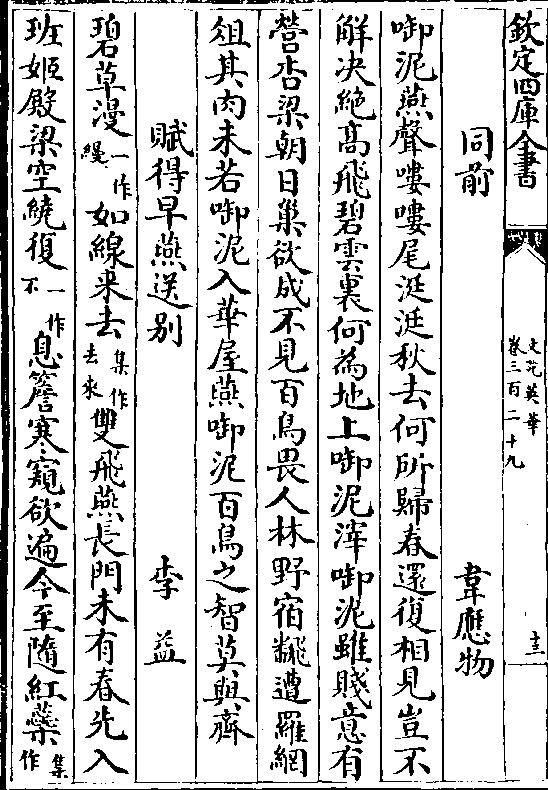 欽定四庫全書
文苑英華
卷三百二十九
十三
同前 韋應物
啣泥燕聲嘍嘍尾涎涎秋去何所歸春還復相見豈不
解决絶高飛碧雲裏何為地上啣泥滓啣泥雖賤意有
營杏梁朝日巢欲成不見百鳥畏人林野宿翻遭羅網
俎其肉未若啣泥入華屋燕啣泥百鳥之智莫與齊
賦得早燕送别 李益
碧草漫一作縵如線来去集作去來雙飛燕長門未有春先入
班姬殿梁空繞復一作不息簷寒窺欲遍今至隨紅蘂集作